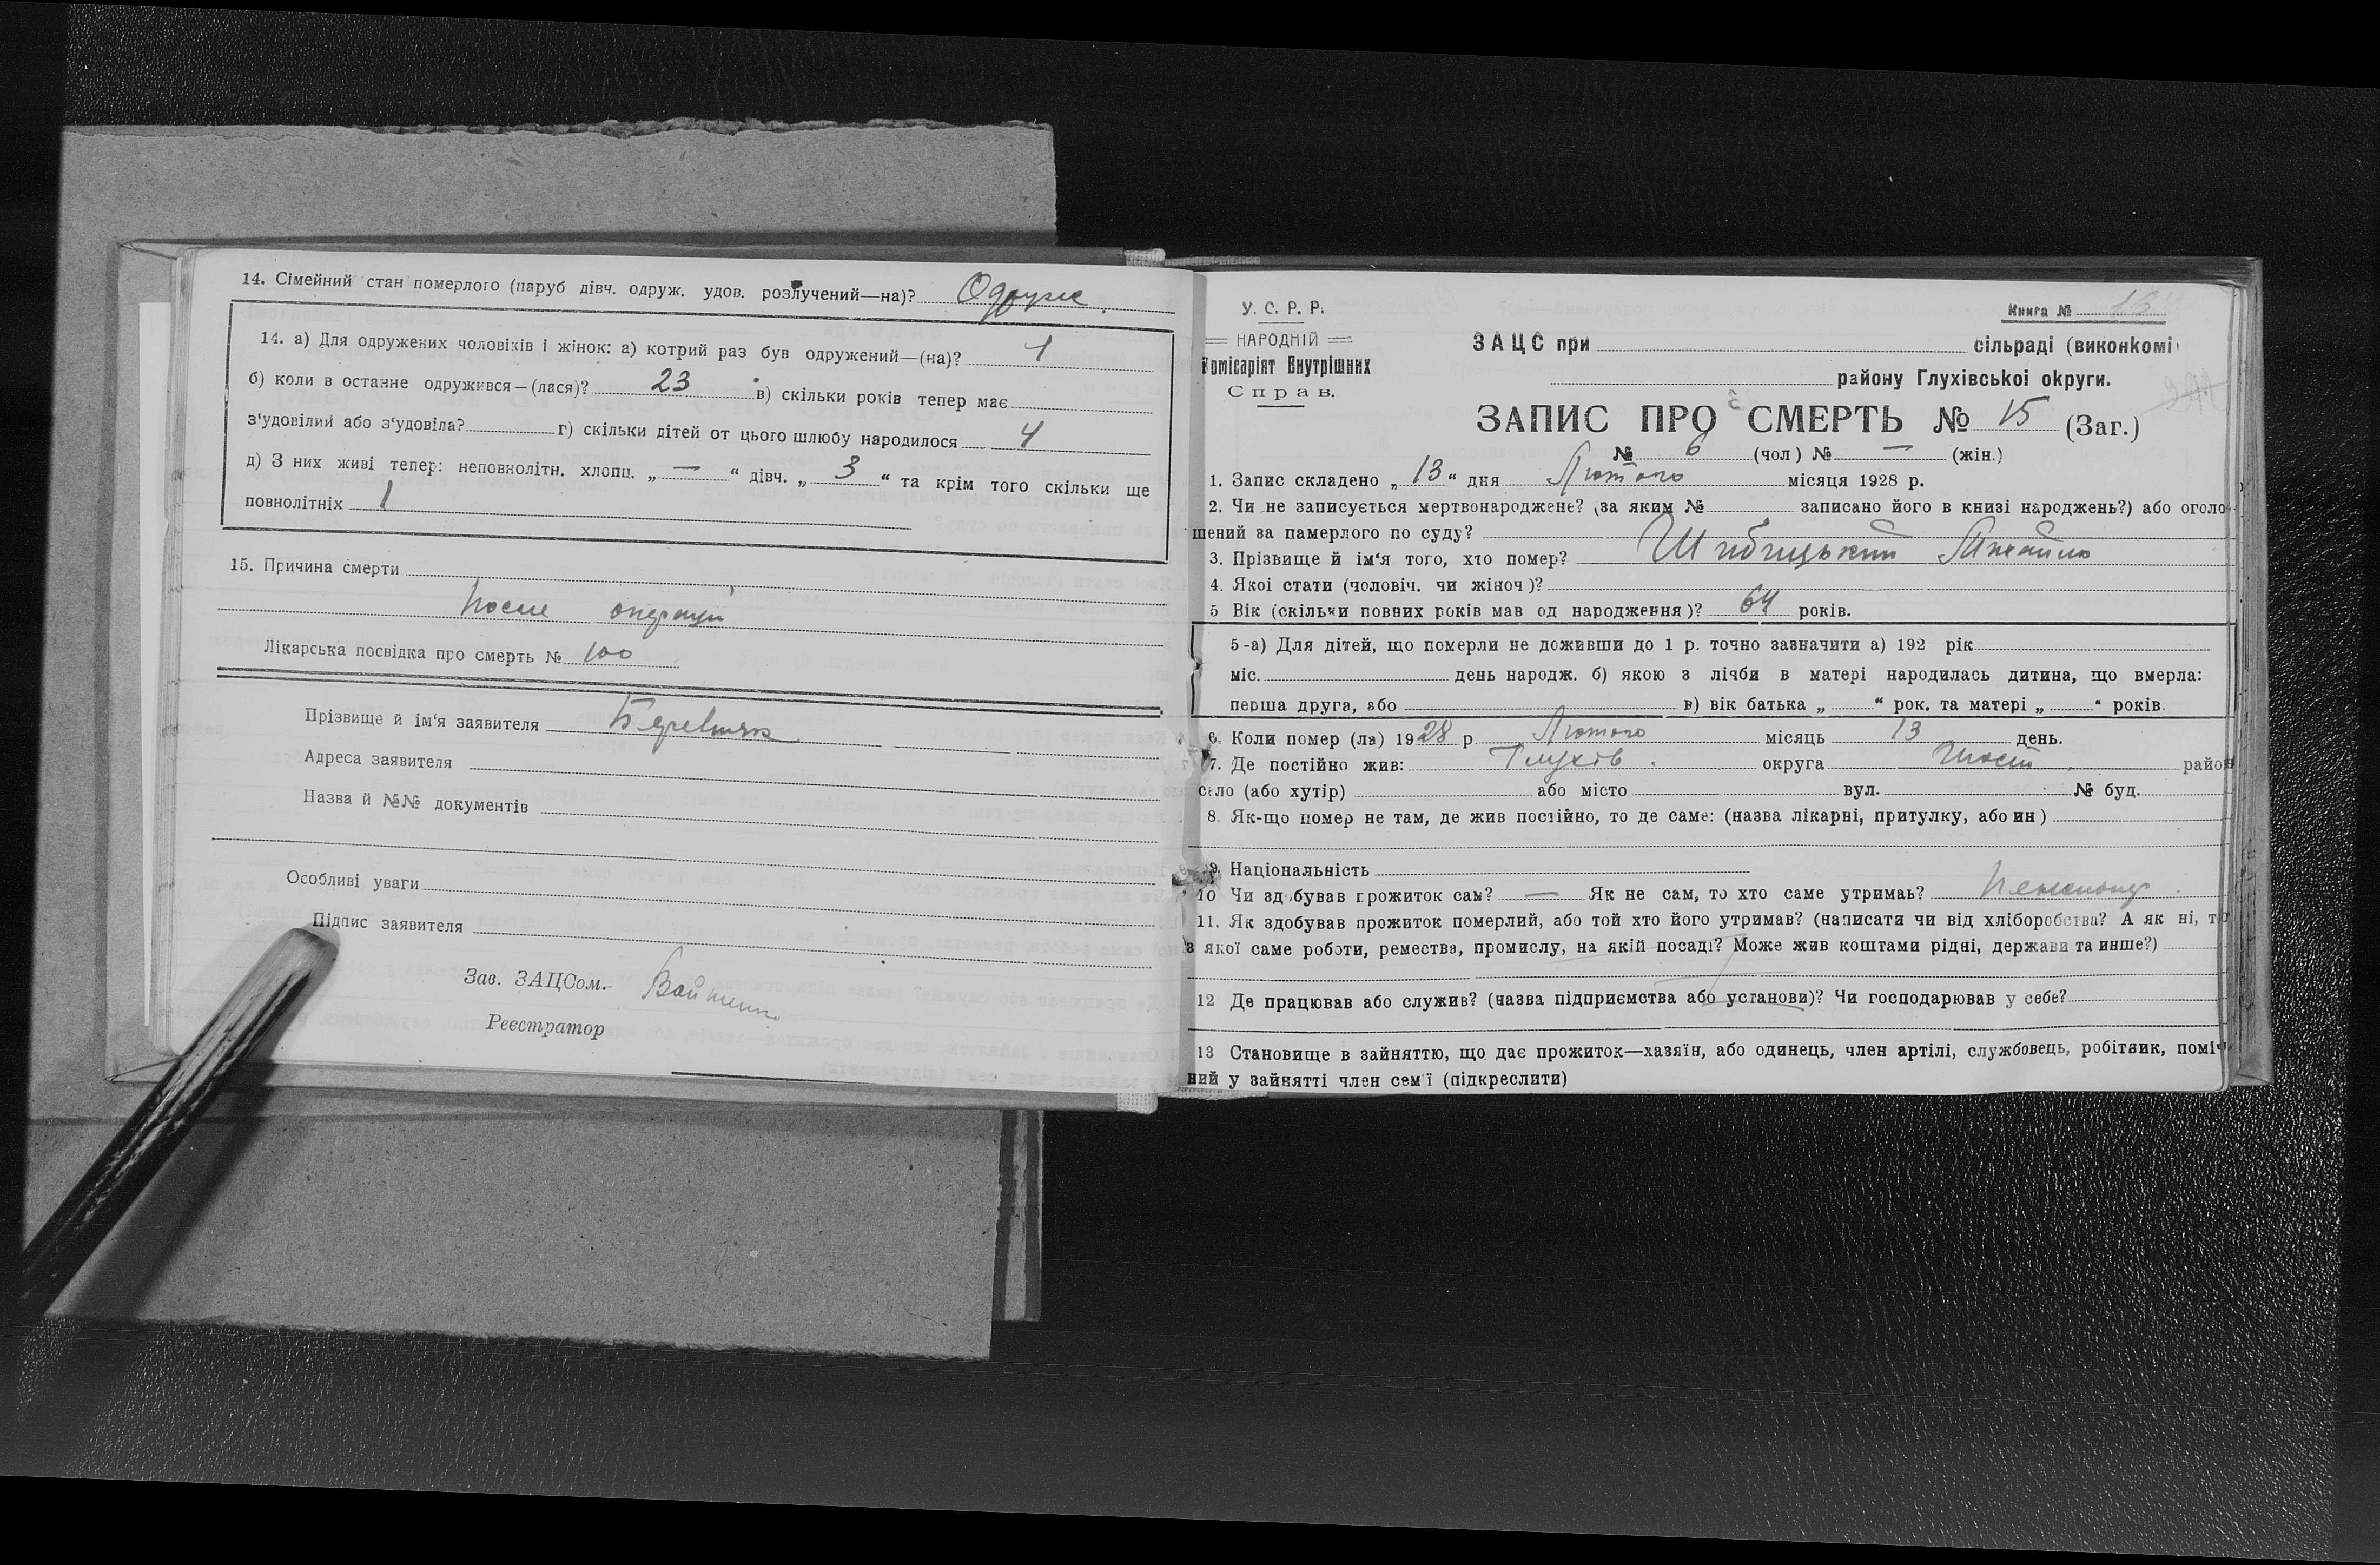 14. Сімейний стан померлого (паруб дівч. одруж. удов. розлучений—на)? Одруже
14. а) Для одружених чоловіків і жінок: а) котрий раз був одружений—(на)? 1
б) коли в останнє одружився—(лася)? 23 в) скільки років тепер має
з'удовілий або з'удовіла? г) скільки дітей от цього шлюбу народилося 4
д) З них живі тепер: неповнолітн. хлопц. „ — “ дівч. „ 3 “ та крім того скільки ще
повнолітніх 1
15. Причина смерти
После операции
Лікарська посвідка про смерть № 100
Прізвище й ім'я заявителя
Адреса заявителя
Назва й №№ документів
Особливі уваги
Підпис заявителя
Зав. ЗАЦСом.
Реєстратор
У. С. Р. Р.
НАРОДНІЙ
Комісаріят Внутрішних
Справ.
Книга № 16
ЗАЦС при сільраді (виконкомі
району Глухівської округи.
ЗАПИС ПРО СМЕРТЬ № 15 (Заг.)
№ 6 (чол) № — (жін.)
1. Запис складено „ 13 “ дня Лютого місяця 1928 р.
2. Чи не записується мертвонароджене? (за яким № записано його в книзі народжень?) або оголо
шений за памерлого по суду?
3. Прізвище й ім'я того, хто помер? Шибицький Михайло
4. Якої стати (чоловіч. чи жіноч)?
5 Вік (скільки повних років мав од народження)? 64 років.
5-а) Для дітей, що померли не доживши до 1 р. точно зазначити а) 192 рік
міс. день народж. б) якою з лічби в матері народилась дитина, що вмерла:
перша друга, або в) вік батька „ “ рок. та матері „ “ років.
6. Коли помер (ла) 1928 р. Лютого місяць 13 день.
7. Де постійно жив: Глухів. округа Шост. район
село (або хутір) або місто вул. № буд.
8. Як-що помер не там, де жив постійно, то де саме: (назва лікарні, притулку, або ин)
9. Національність
10 Чи здобував прожиток сам? — Як не сам, то хто саме утримав?
11. Як здобував прожиток померлий, або той хто його утримав? (написати чи від хліборобства? А як ні, то
з якої саме роботи, ремества, промислу, на якій посаді? Може жив коштами рідні, держави та инше?)
12 Де працював або служив? (назва підприємства або установи)? Чи господарював у себе?
13 Становище в зайняттю, що дає прожиток—хазяїн, або одинець, член артілі, службовець, робітник, поміч
ний у зайнятті член сем'ї (підкреслити)